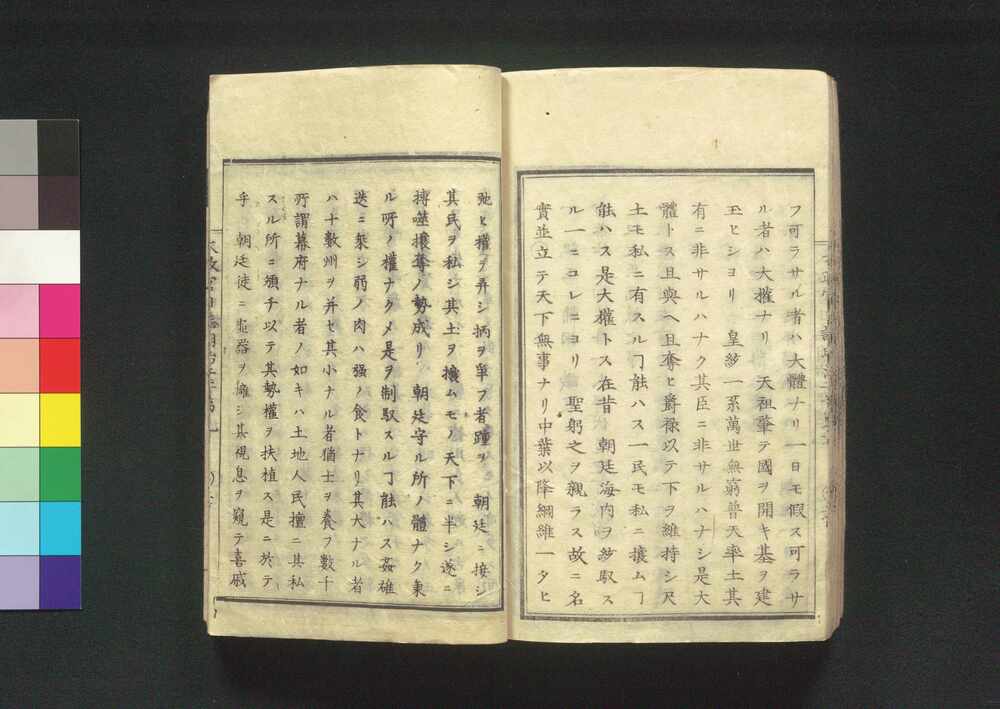 フ可ラサル者ハ大體ナリ一日モ假ス可ラサ
ル者ハ大權ナリ　天祖肇テ國ヲ開キ基ヲ建
玉ヒシヨリ　皇統一系萬世無窮普天率土其
有ニ非サルハナク其臣ニ非サルハナシ是大
體トス且與ヘ且奪ヒ爵禄以テ下ヲ維持シ尺
土モ私ニ有スルヿ能ハス一民モ私ニ攘ムヿ
能ハス是大權トス在昔　朝廷海内ヲ統馭ス
ル一ニコレニヨリ聖躬之ヲ親ラス故ニ名
實並立テ天下無事ナリ中葉以降綱維一タヒ
弛ヒ權ヲ弄シ柄ヲ爭フ者踵ヲ　朝廷ニ接シ
其民ヲ私シ其土ヲ攘ムモノ天下ニ半シ遂ニ
搏噬攘奪ノ勢成リ　朝廷守ル所ノ體ナク秉
ル所ノ權ナクメ是ヲ制馭スルヿ能ハス姦雄
迭ニ乘シ弱ノ肉ハ强ノ食トナリ其大ナル者
ハ十數州ヲ并セ其小ナル者猶士ヲ養フ數千
所謂幕府ナル者ノ如キハ土地人民擅ニ其私
スル所ニ頒チ以テ其勢權ヲ扶植ス是ニ於テ
乎　朝廷徒ニ虚器ヲ擁シ其視息ヲ窺テ喜戚